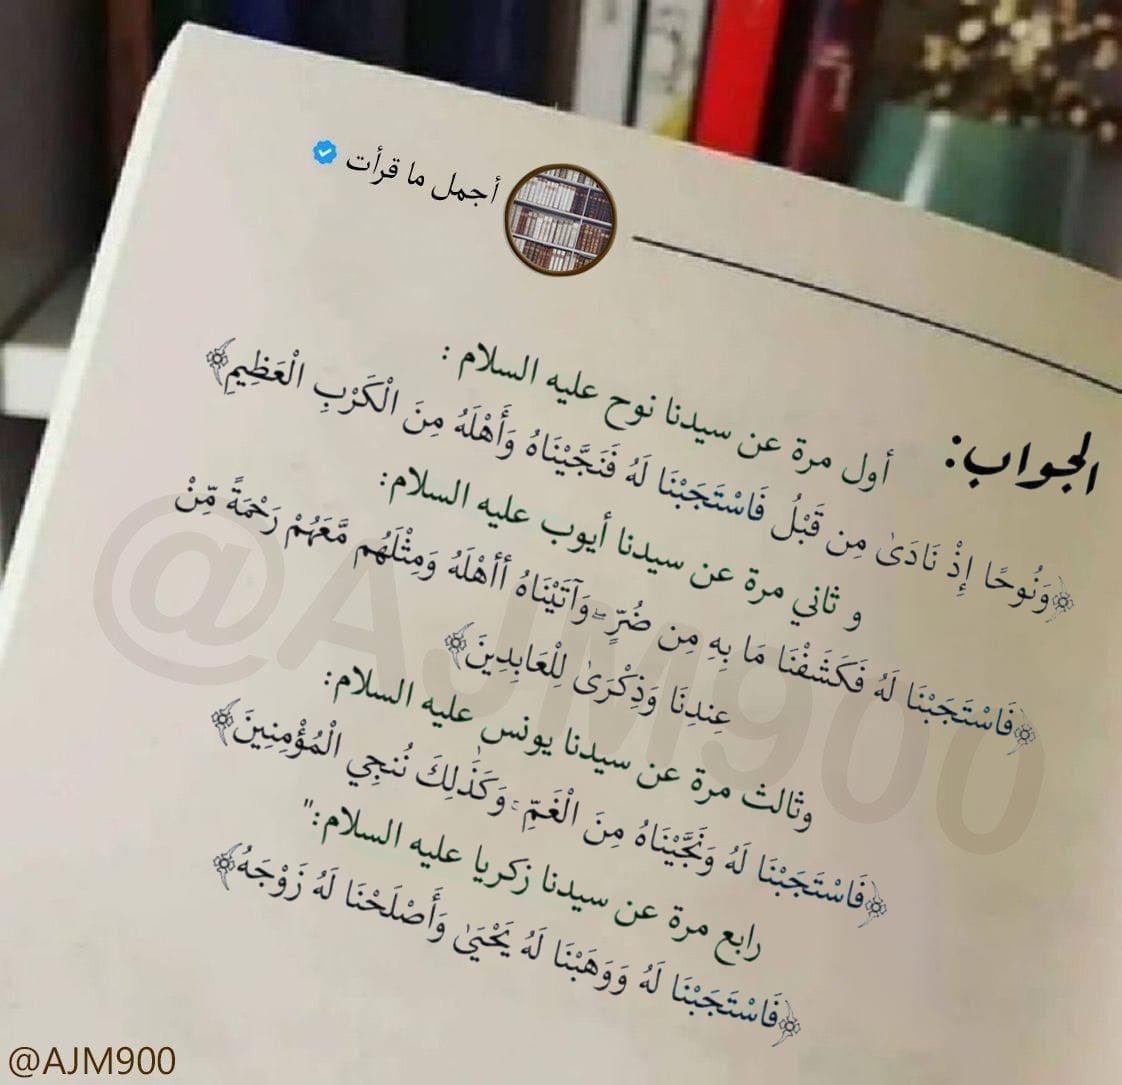 أجمل ما قرأت
الجواب:
أول مرة عن سيدنا نوح عليه السلام :
﴿وَنُوحًا إِذْ نَادَىٰ مِن قَبْلُ فَاسْتَجَبْنَا لَهُ فَنَجَّيْنَاهُ وَأَهْلَهُ مِنَ الْكَرْبِ الْعَظِيمِ﴾
و ثاني مرة عن سيدنا أيوب عليه السلام:
﴿فَاسْتَجَبْنَا لَهُ فَكَشَفْنَا مَا بِهِ مِن ضُرٍّ ۖ وَآتَيْنَاهُ أأَهْلَهُ وَمِثْلَهُم مَّعَهُمْ رَحْمَةً مِّنْ
عِندِنَا وَذِكْرَىٰ لِلْعَابِدِينَ﴾
وثالث مرة عن سيدنا يونس عليه السلام:
﴿فَاسْتَجَبْنَا لَهُ وَنَجَّيْنَاهُ مِنَ الْغَمِّ ۚ وَكَذَٰلِكَ نُنجِي الْمُؤْمِنِينَ﴾
رابع مرة عن سيدنا زكريا عليه السلام:"
﴿فَاسْتَجَبْنَا لَهُ وَوَهَبْنَا لَهُ يَحْيَىٰ وَأَصْلَحْنَا لَهُ زَوْجَهُ﴾
@AJM900
@AJM900